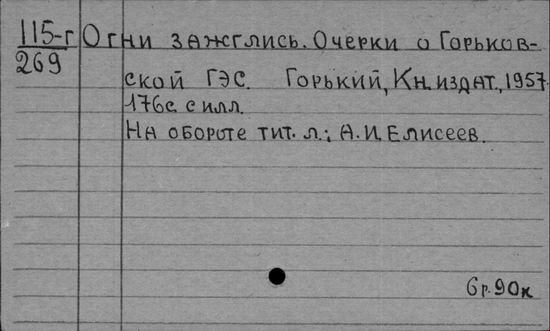 115-г
269
Огни зажглись. Очерки о Горьков-
ской ГЭС. Горький, Кн. издат., 1957.
176с. с илл.
На обороте тит. л.: А.И. Елисеев.
6р.90к